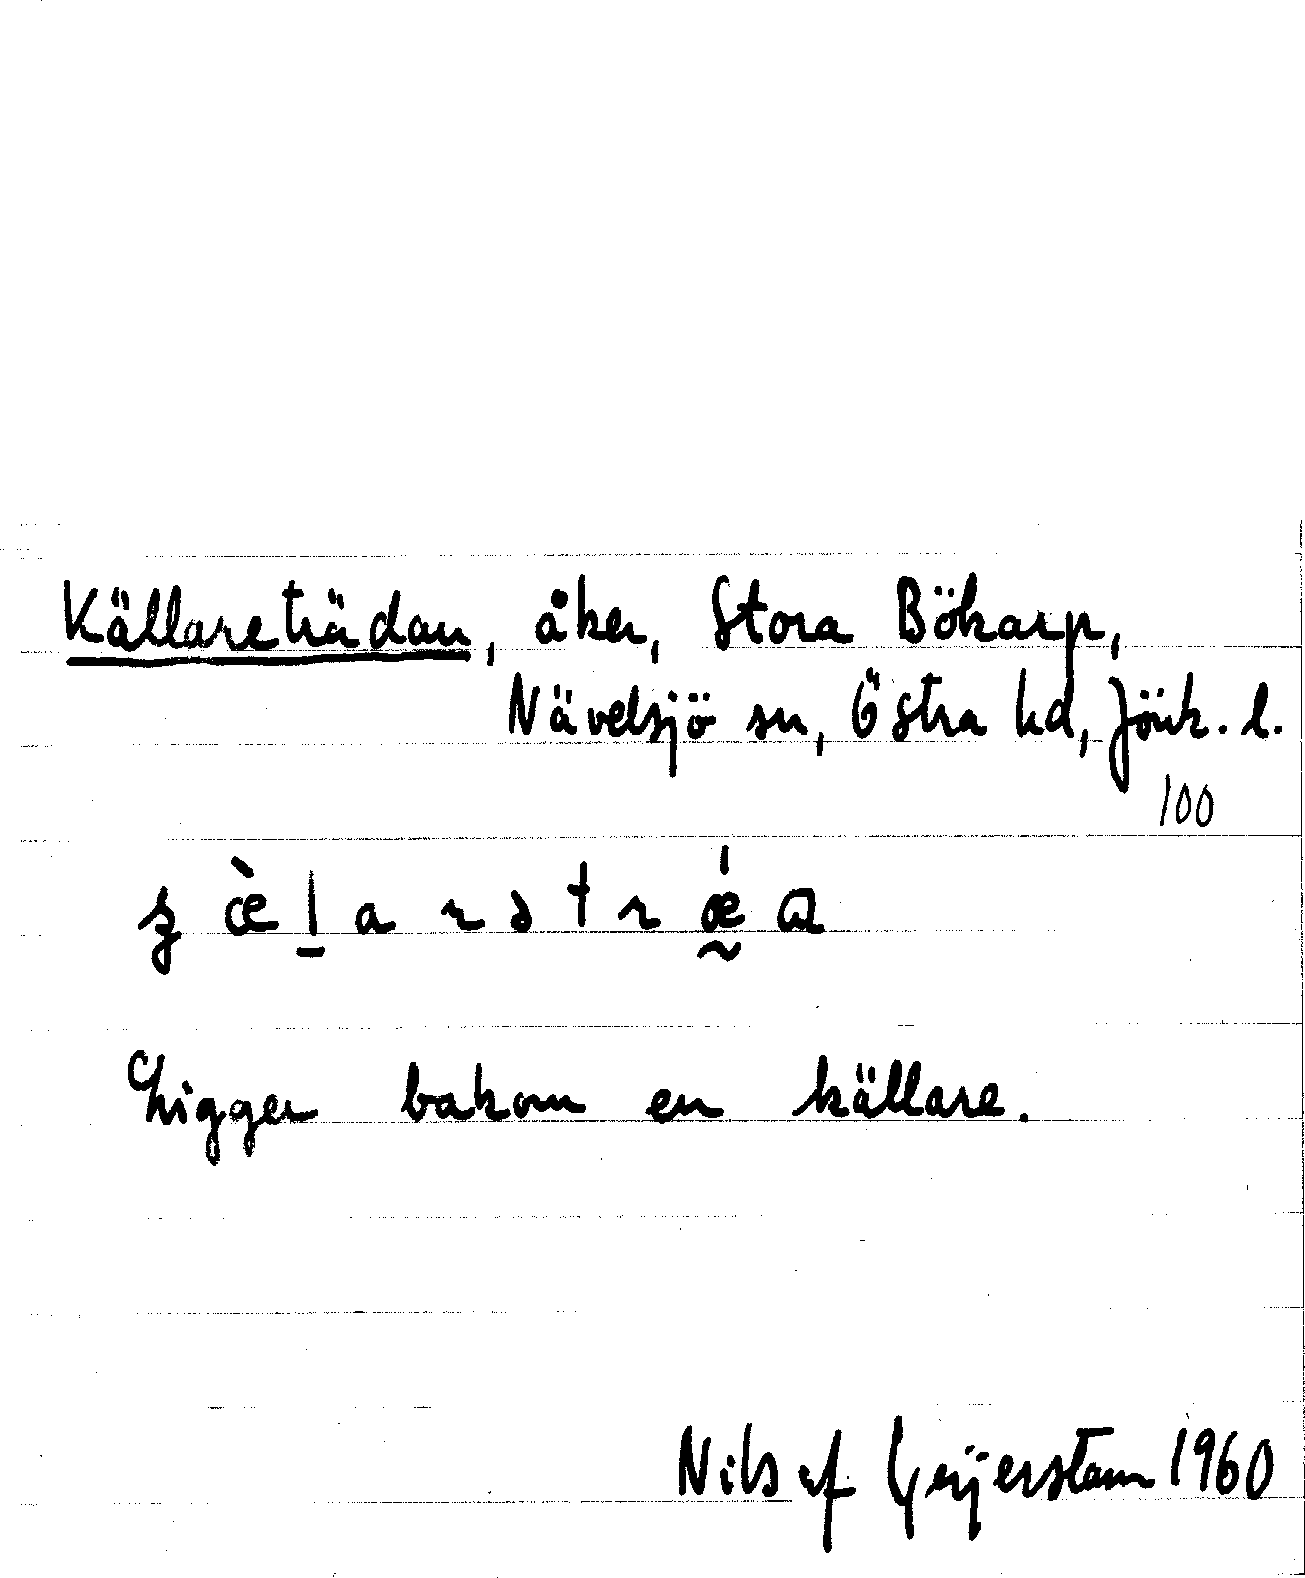 Källareträdan, åker, Stora Bökarp,
Nävelsjö sn, Östra hd, Jönk. l.
100
Ligger bakom en källare.
Nils af Geijerstam 1960